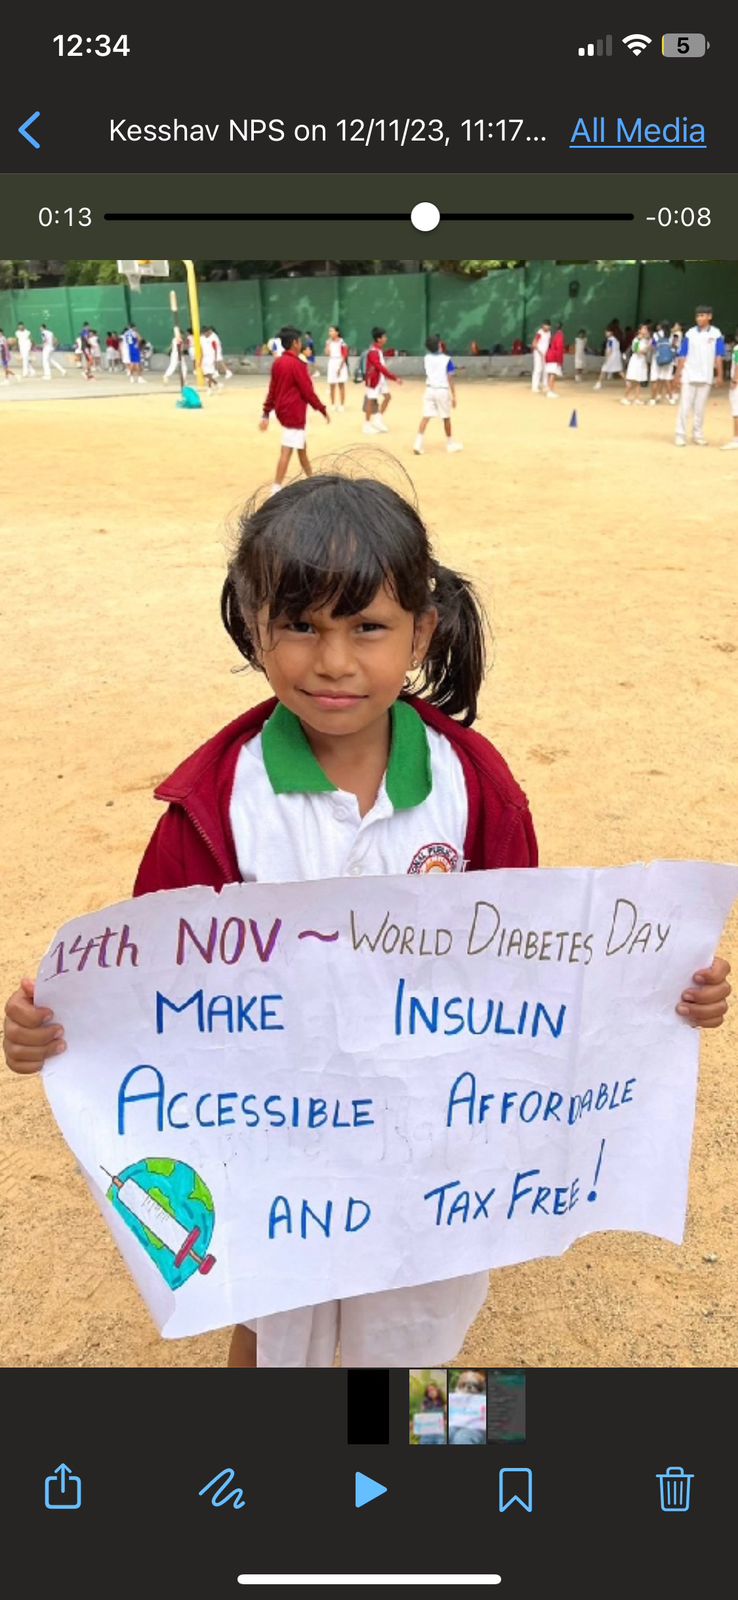 12:34
5
Kesshav NPS on 12/11/23, 11:17...
All Media
0:13
-0:08
14th NOV ~ WORLD DIABETES DAY
MAKE INSULIN
ACCESSIBLE AFFORDABLE
AND TAX FREE!